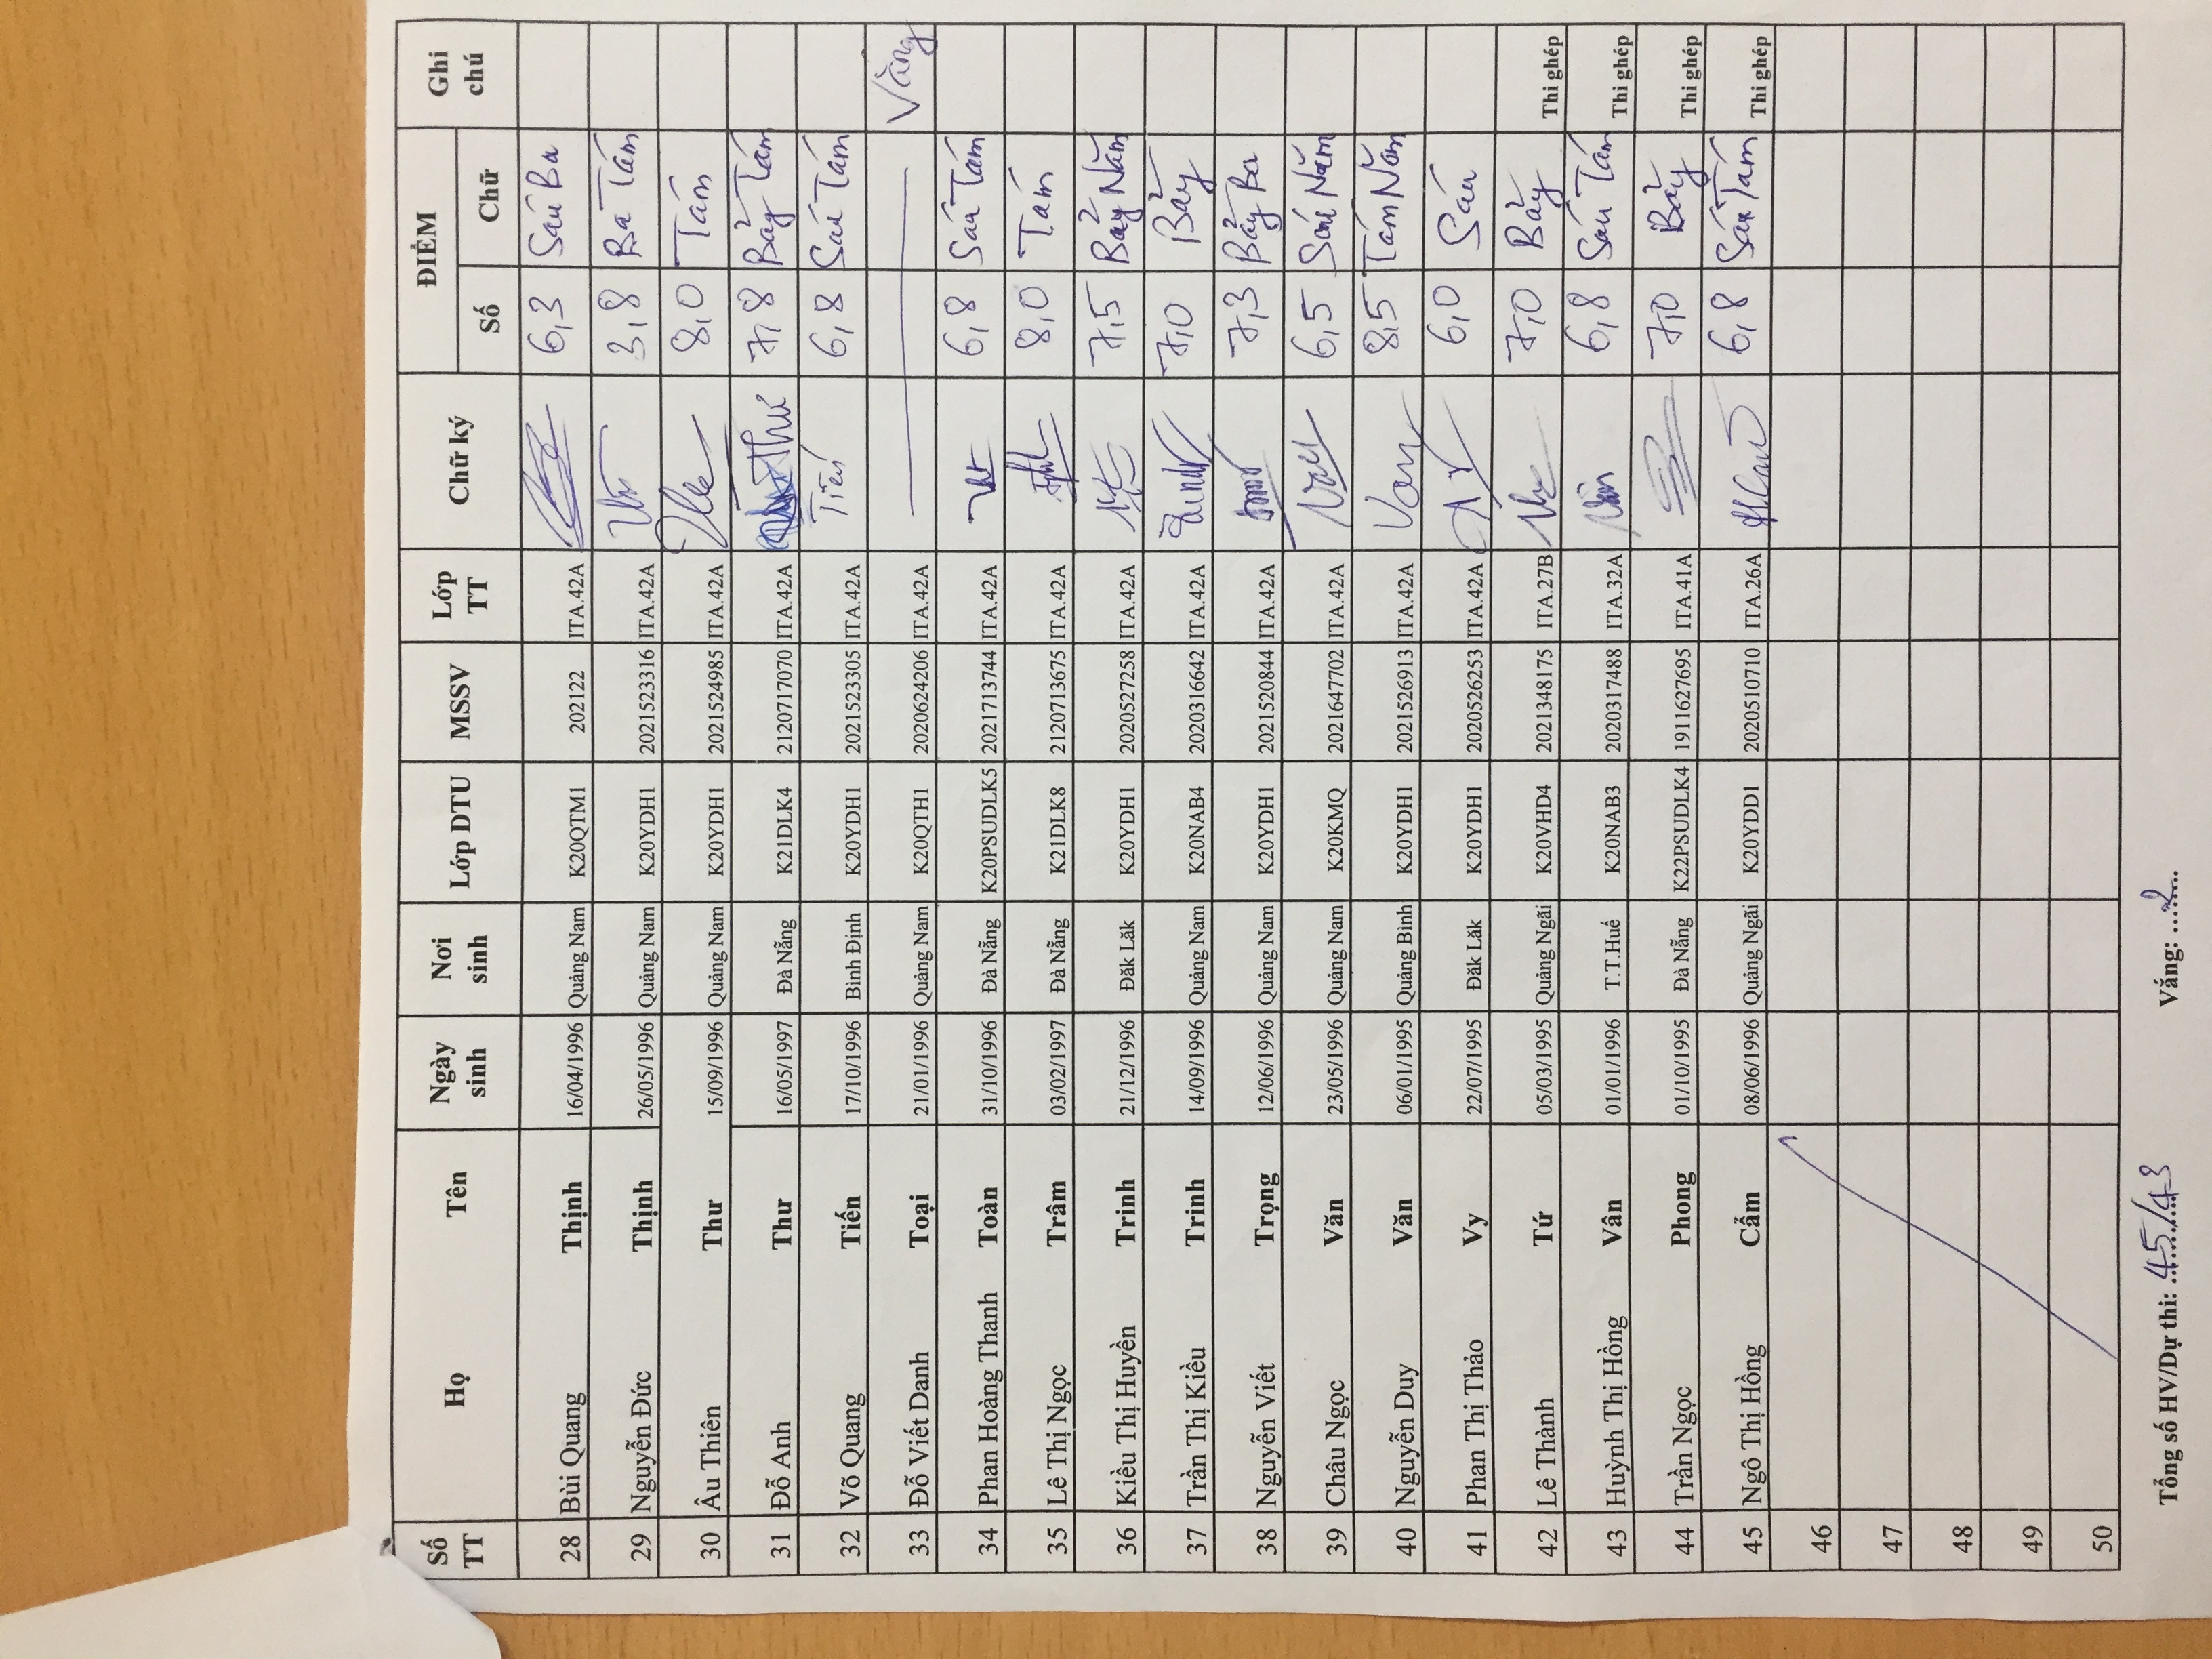 Số TT Họ Tên Ngày sinh Nơi sinh Lớp DTU MSSV Lớp TT Chữ ký ĐIỂM Ghi chú
Số Chữ
28 Bùi Quang Thịnh 16/04/1996 Quảng Nam K20QTM1 202122 ITA.42A 6,3 Sáu Ba
29 Nguyễn Đức Thịnh 26/05/1996 Quảng Nam K20YDH1 2021523316 ITA.42A 3,8 Ba Tám
30 Âu Thiên Thư 15/09/1996 Quảng Nam K20YDH1 2021524985 ITA.42A 8,0 Tám
31 Đỗ Anh Thư 16/05/1997 Đà Nẵng K21DLK4 2120717070 ITA.42A Thư 7,8 Bảy Tám
32 Võ Quang Tiến 17/10/1996 Bình Định K20YDH1 2021523305 ITA.42A Tiến 6,8 Sáu Tám
33 Đỗ Viết Danh Toại 21/01/1996 Quảng Nam K20QTH1 2020624206 ITA.42A Vắng
34 Phan Hoàng Thanh Toàn 31/10/1996 Đà Nẵng K20PSUDLK5 2021713744 ITA.42A 6,8 Sáu Tám
35 Lê Thị Ngọc Trâm 03/02/1997 Đà Nẵng K21DLK8 2120713675 ITA.42A 8,0 Tám
36 Kiều Thị Huyền Trinh 21/12/1996 Đăk Lăk K20YDH1 2020527258 ITA.42A 7,5 Bảy Năm
37 Trần Thị Kiều Trinh 14/09/1996 Quảng Nam K20NAB4 2020316642 ITA.42A 7,0 Bảy
38 Nguyễn Viết Trọng 12/06/1996 Quảng Nam K20YDH1 2021520844 ITA.42A 7,3 Bảy Ba
39 Châu Ngọc Văn 23/05/1996 Quảng Nam K20KMQ 2021647702 ITA.42A 6,5 Sáu Năm
40 Nguyễn Duy Văn 06/01/1995 Quảng Bình K20YDH1 2021526913 ITA.42A 8,5 Tám Năm
41 Phan Thị Thảo Vy 22/07/1995 Đăk Lăk K20YDH1 2020526253 ITA.42A 6,0 Sáu
42 Lê Thành Tứ 05/03/1995 Quảng Ngãi K20VHD4 2021348175 ITA.27B 7,0 Bảy Thi ghép
43 Huỳnh Thị Hồng Vân 01/01/1996 T.T.Huế K20NAB3 2020317488 ITA.32A Vân 6,8 Sáu Tám Thi ghép
44 Trần Ngọc Phong 01/10/1995 Đà Nẵng K22PSUDLK4 1911627695 ITA.41A 7,0 Bảy Thi ghép
45 Ngô Thị Hồng Cẩm 08/06/1996 Quảng Ngãi K20YDD1 2020510710 ITA.26A 6,8 Sáu Tám Thi ghép
46
47
48
49
50
Tổng số HV/Dự thi: 45/43 Vắng: 2